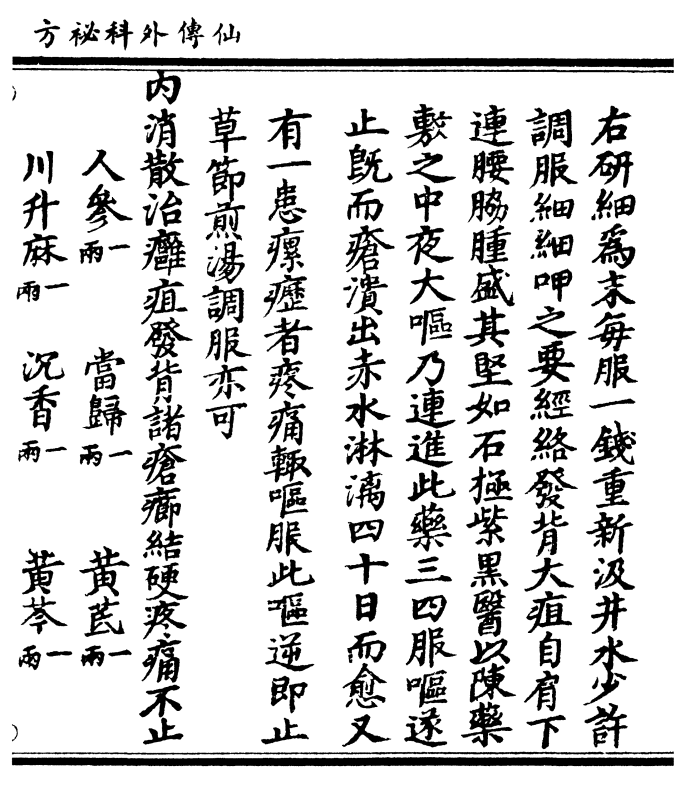 仙傳外科祕方
右研細爲末每服一錢重新汲井水少許
調服細細呷之要經絡發背大疽自肩下
連腰脇腫盛其堅如石極紫黑醫以陳藥
敷之中夜大嘔乃連進此藥三四服嘔遂
止旣而瘡潰出赤水淋漓四十日而愈又
有一患瘰癧者疼痛輒嘔服此嘔逆即止
草節煎湯調服亦可
內消散治癰疽發背諸瘡癤結硬疼痛不止
人參一兩 當歸一兩 黃芪一兩
川升麻一兩 沉香一兩 黃芩一兩